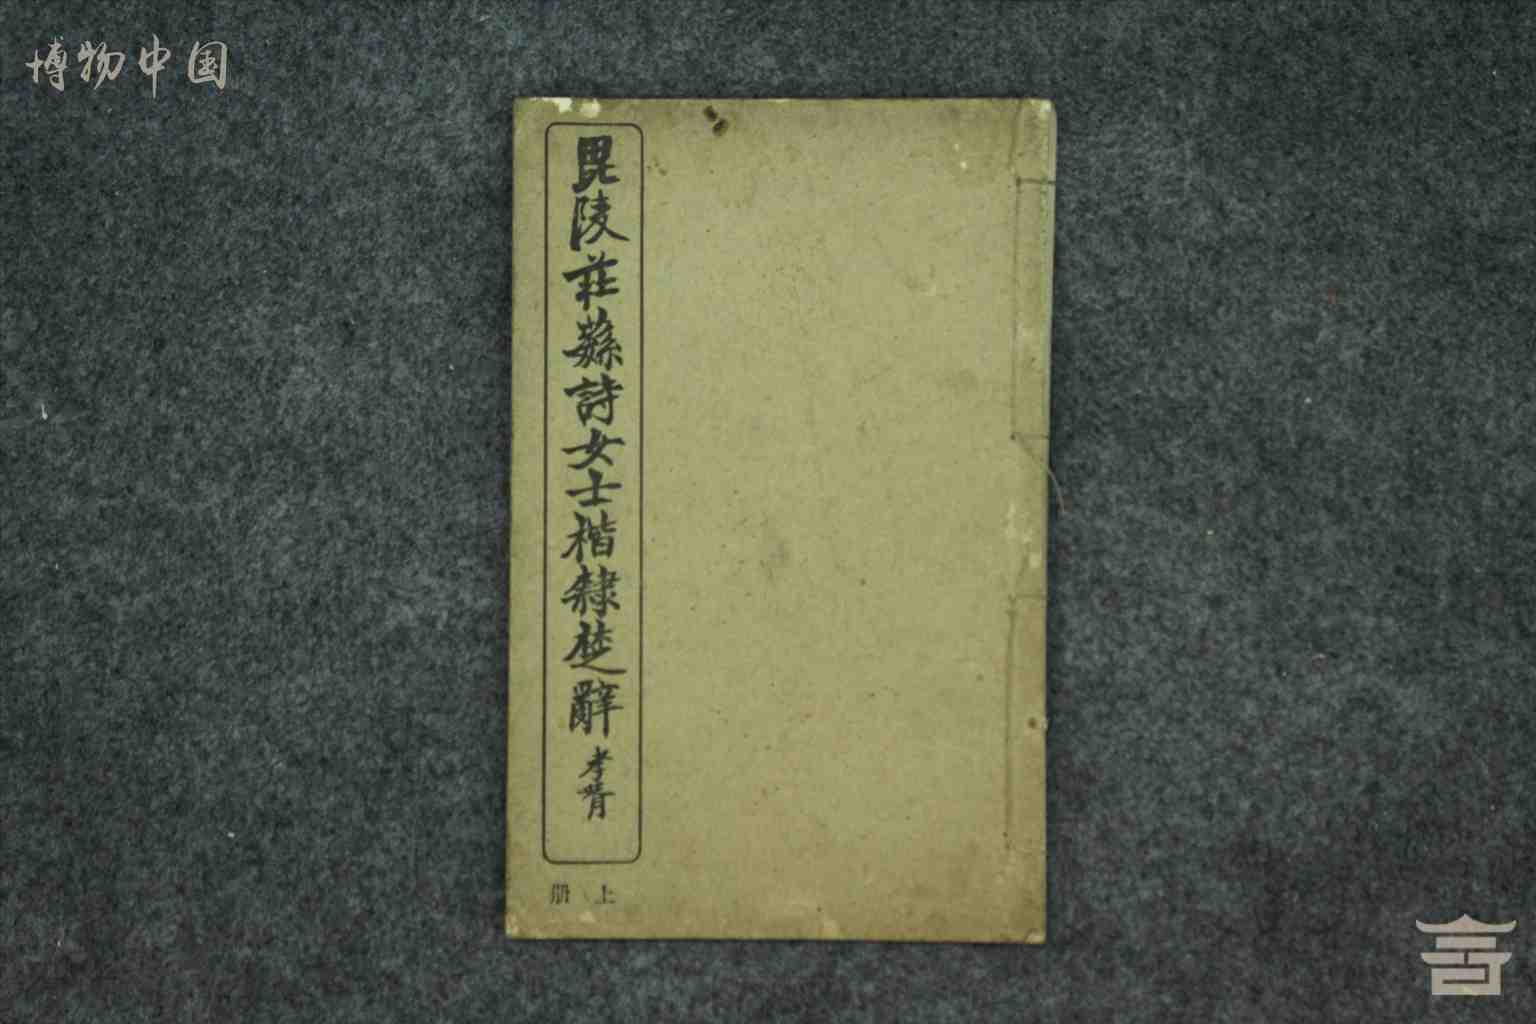 博物中国
毘陵莊蘩詩女士楷隸楚辭
孝胥
上册